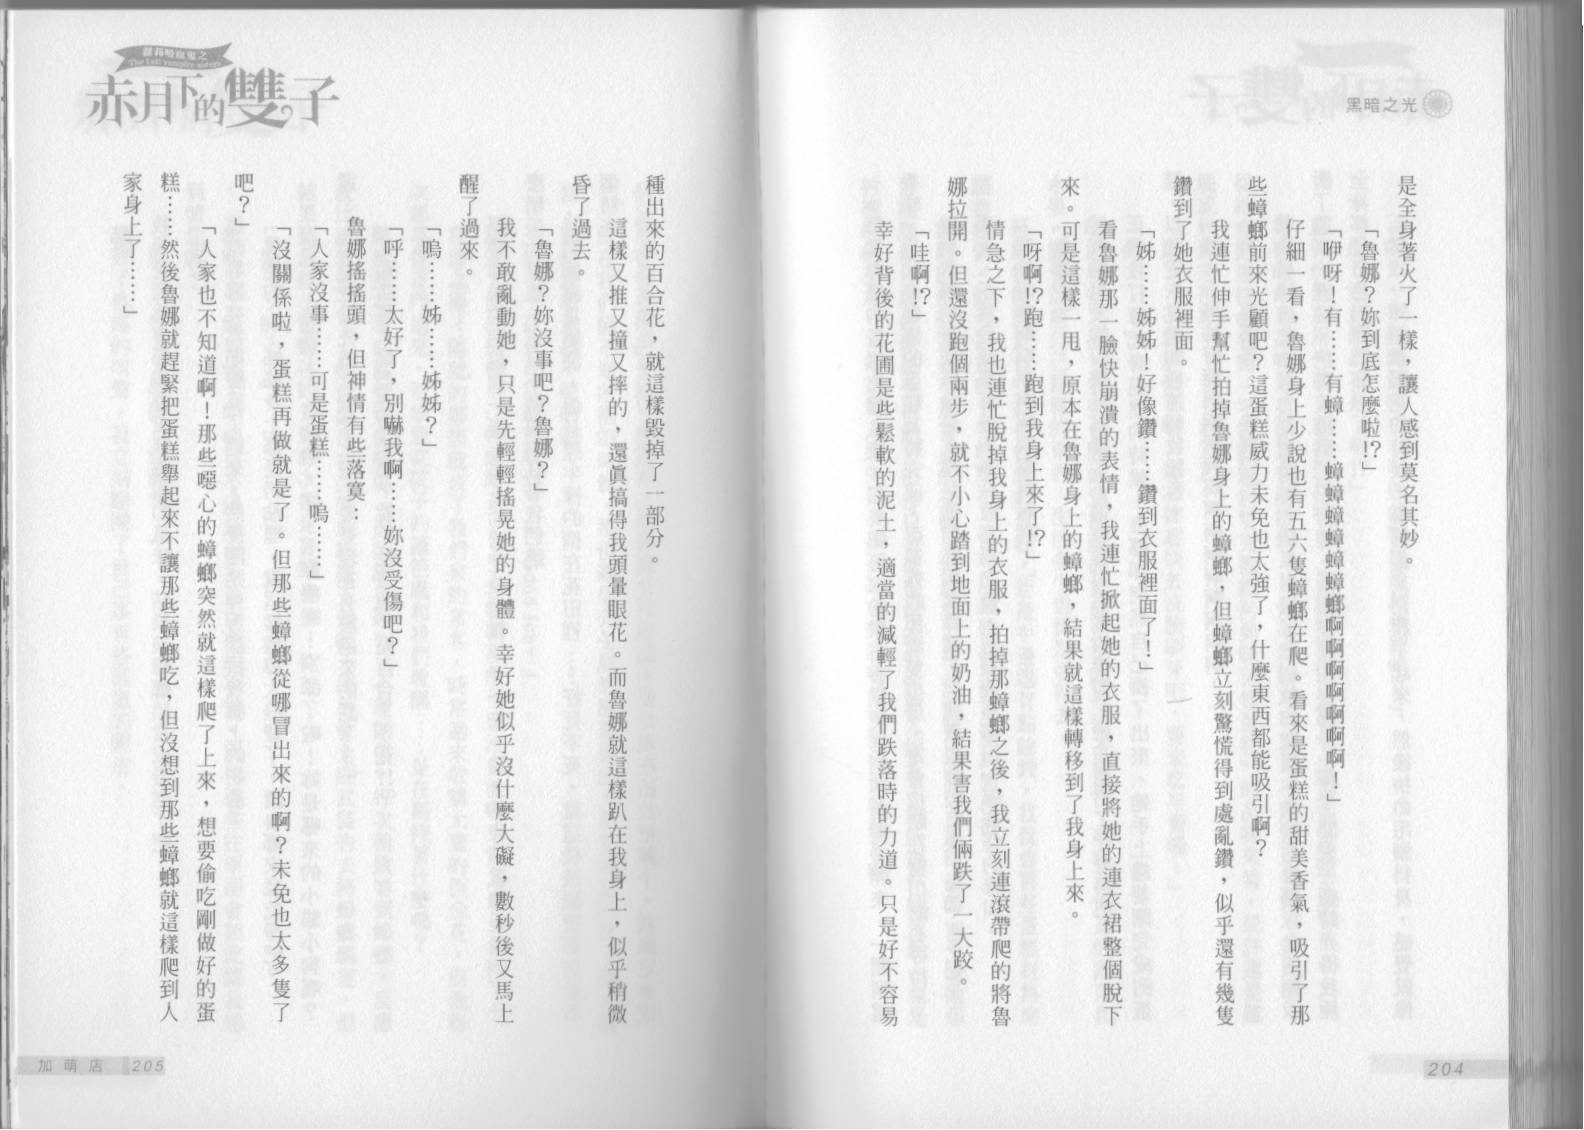 黑暗之光
是全身著火了一樣，讓人感到莫名其妙。
「魯娜？妳到底怎麼啦!?」
「咿呀！有……有蟑……蟑蟑蟑蟑蟑蟑螂啊啊啊啊啊啊啊！」
仔細一看，魯娜身上少說也有五六隻蟑螂在爬。看來是蛋糕的甜美香氣，吸引了那
些蟑螂前來光顧吧？這蛋糕威力未免也太強了，什麼東西都能吸引啊？
我連忙伸手幫忙拍掉魯娜身上的蟑螂，但蟑螂立刻驚慌得到處亂鑽，似乎還有幾隻
鑽到了她衣服裡面。
「姊……姊姊！好像鑽……鑽到衣服裡面了！」
看魯娜那一臉快崩潰的表情，我連忙掀起她的衣服，直接將她的連衣裙整個脫下
來。可是這樣一甩，原本在魯娜身上的蟑螂，結果就這樣轉移到了我身上來。
「呀啊!?跑……跑到我身上來了!?」
情急之下，我也連忙脫掉我身上的衣服，拍掉那蟑螂之後，我立刻連滾帶爬的將魯
娜拉開。但還沒跑個兩步，就不小心踏到地面上的奶油，結果害我們倆跌了一大跤。
「哇啊!?」
幸好背後的花圃是些鬆軟的泥土，適當的減輕了我們跌落時的力道。只是好不容易
204
蘿莉吸血鬼之
The Loli vampire sisters
赤月下的雙子
種出來的百合花，就這樣毀掉了一部分。
這樣又推又撞又摔的，還真搞得我頭暈眼花。而魯娜就這樣趴在我身上，似乎稍微
昏了過去。
「魯娜？妳沒事吧？魯娜？」
我不敢亂動她，只是先輕輕搖晃她的身體。幸好她似乎沒什麼大礙，數秒後又馬上
醒了過來。
「嗚……姊……姊姊？」
「呼……太好了，別嚇我啊……妳沒受傷吧？」
魯娜搖搖頭，但神情有些落寞：
「人家沒事……可是蛋糕……嗚……」
「沒關係啦，蛋糕再做就是了。但那些蟑螂從哪冒出來的啊？未免也太多隻了
吧？」
「人家也不知道啊！那些噁心的蟑螂突然就這樣爬了上來，想要偷吃剛做好的蛋
糕……然後魯娜就趕緊把蛋糕舉起來不讓那些蟑螂吃，但沒想到那些蟑螂就這樣爬到人
家身上了……」
加萌店 205